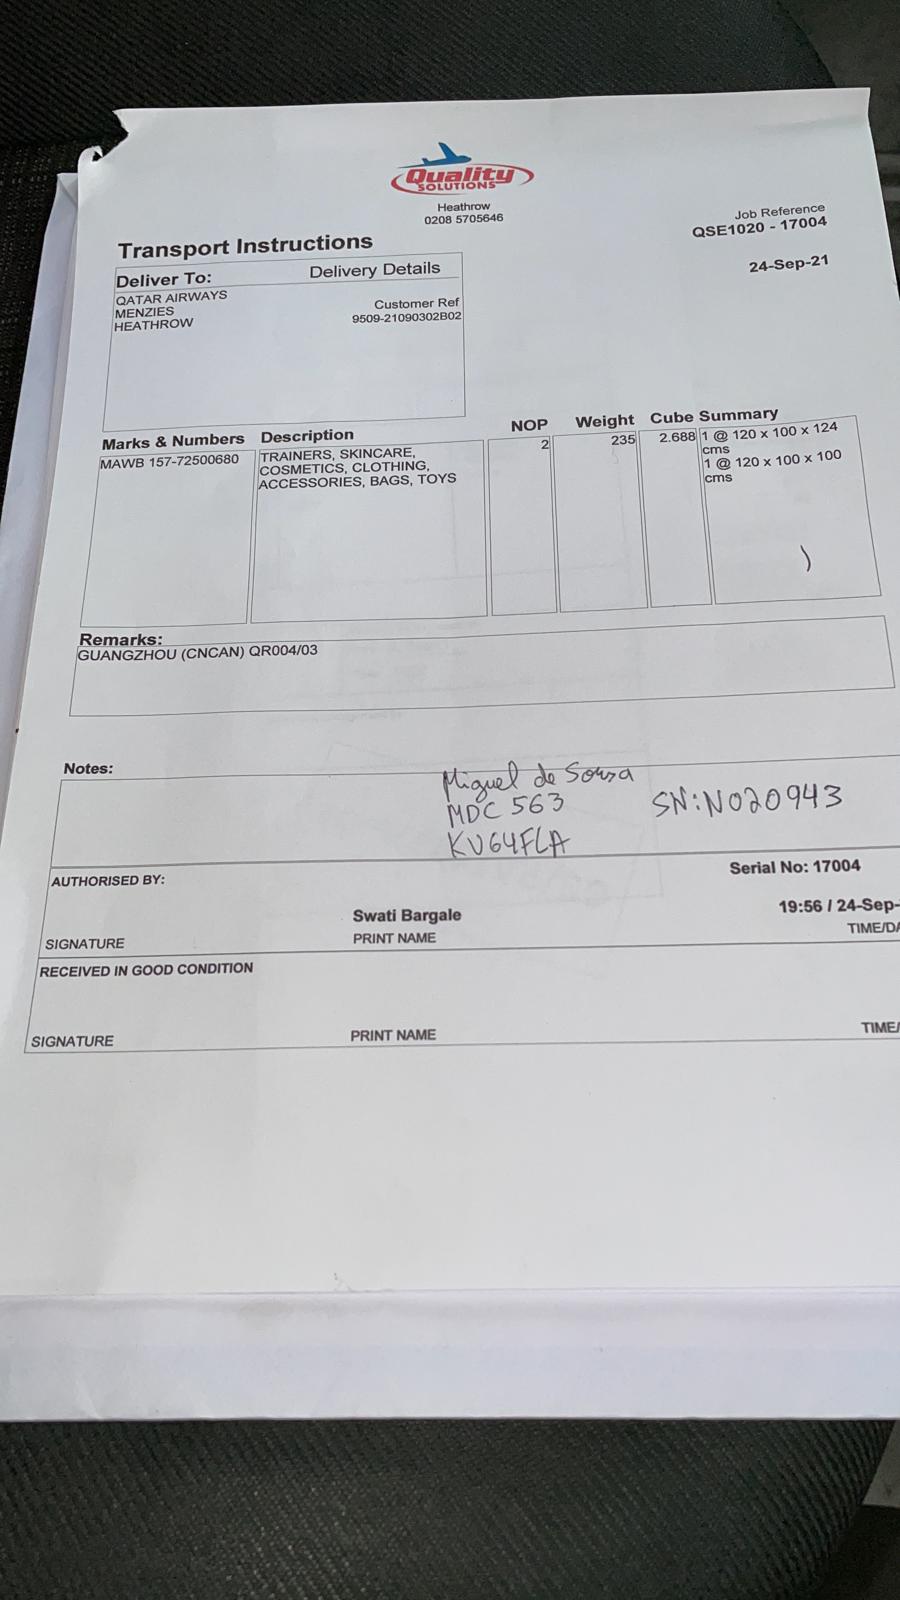 Quality
SOLUTIONS
Heathrow
0208 5705646
Job Reference
QSE1020 - 17004
24-Sep-21
Transport Instructions
Deliver To: Delivery Details
QATAR AIRWAYS
MENZIES
HEATHROW
Customer Ref
9509-21090302B02
Marks & Numbers Description NOP Weight Cube Summary
MAWB 157-72500680
TRAINERS, SKINCARE,
COSMETICS, CLOTHING,
ACCESSORIES, BAGS, TOYS
2
235
2.688
1 @ 120 x 100 x 124
cms
1 @ 120 x 100 x 100
cms
Remarks:
GUANGZHOU (CNCAN) QR004/03
Notes:
Miguel de Sousa
MDC 563
KV64FLA
SN:N020943
AUTHORISED BY:
Serial No: 17004
Swati Bargale
19:56 / 24-Sep-
SIGNATURE PRINT NAME TIME/DA
RECEIVED IN GOOD CONDITION
SIGNATURE PRINT NAME TIME/